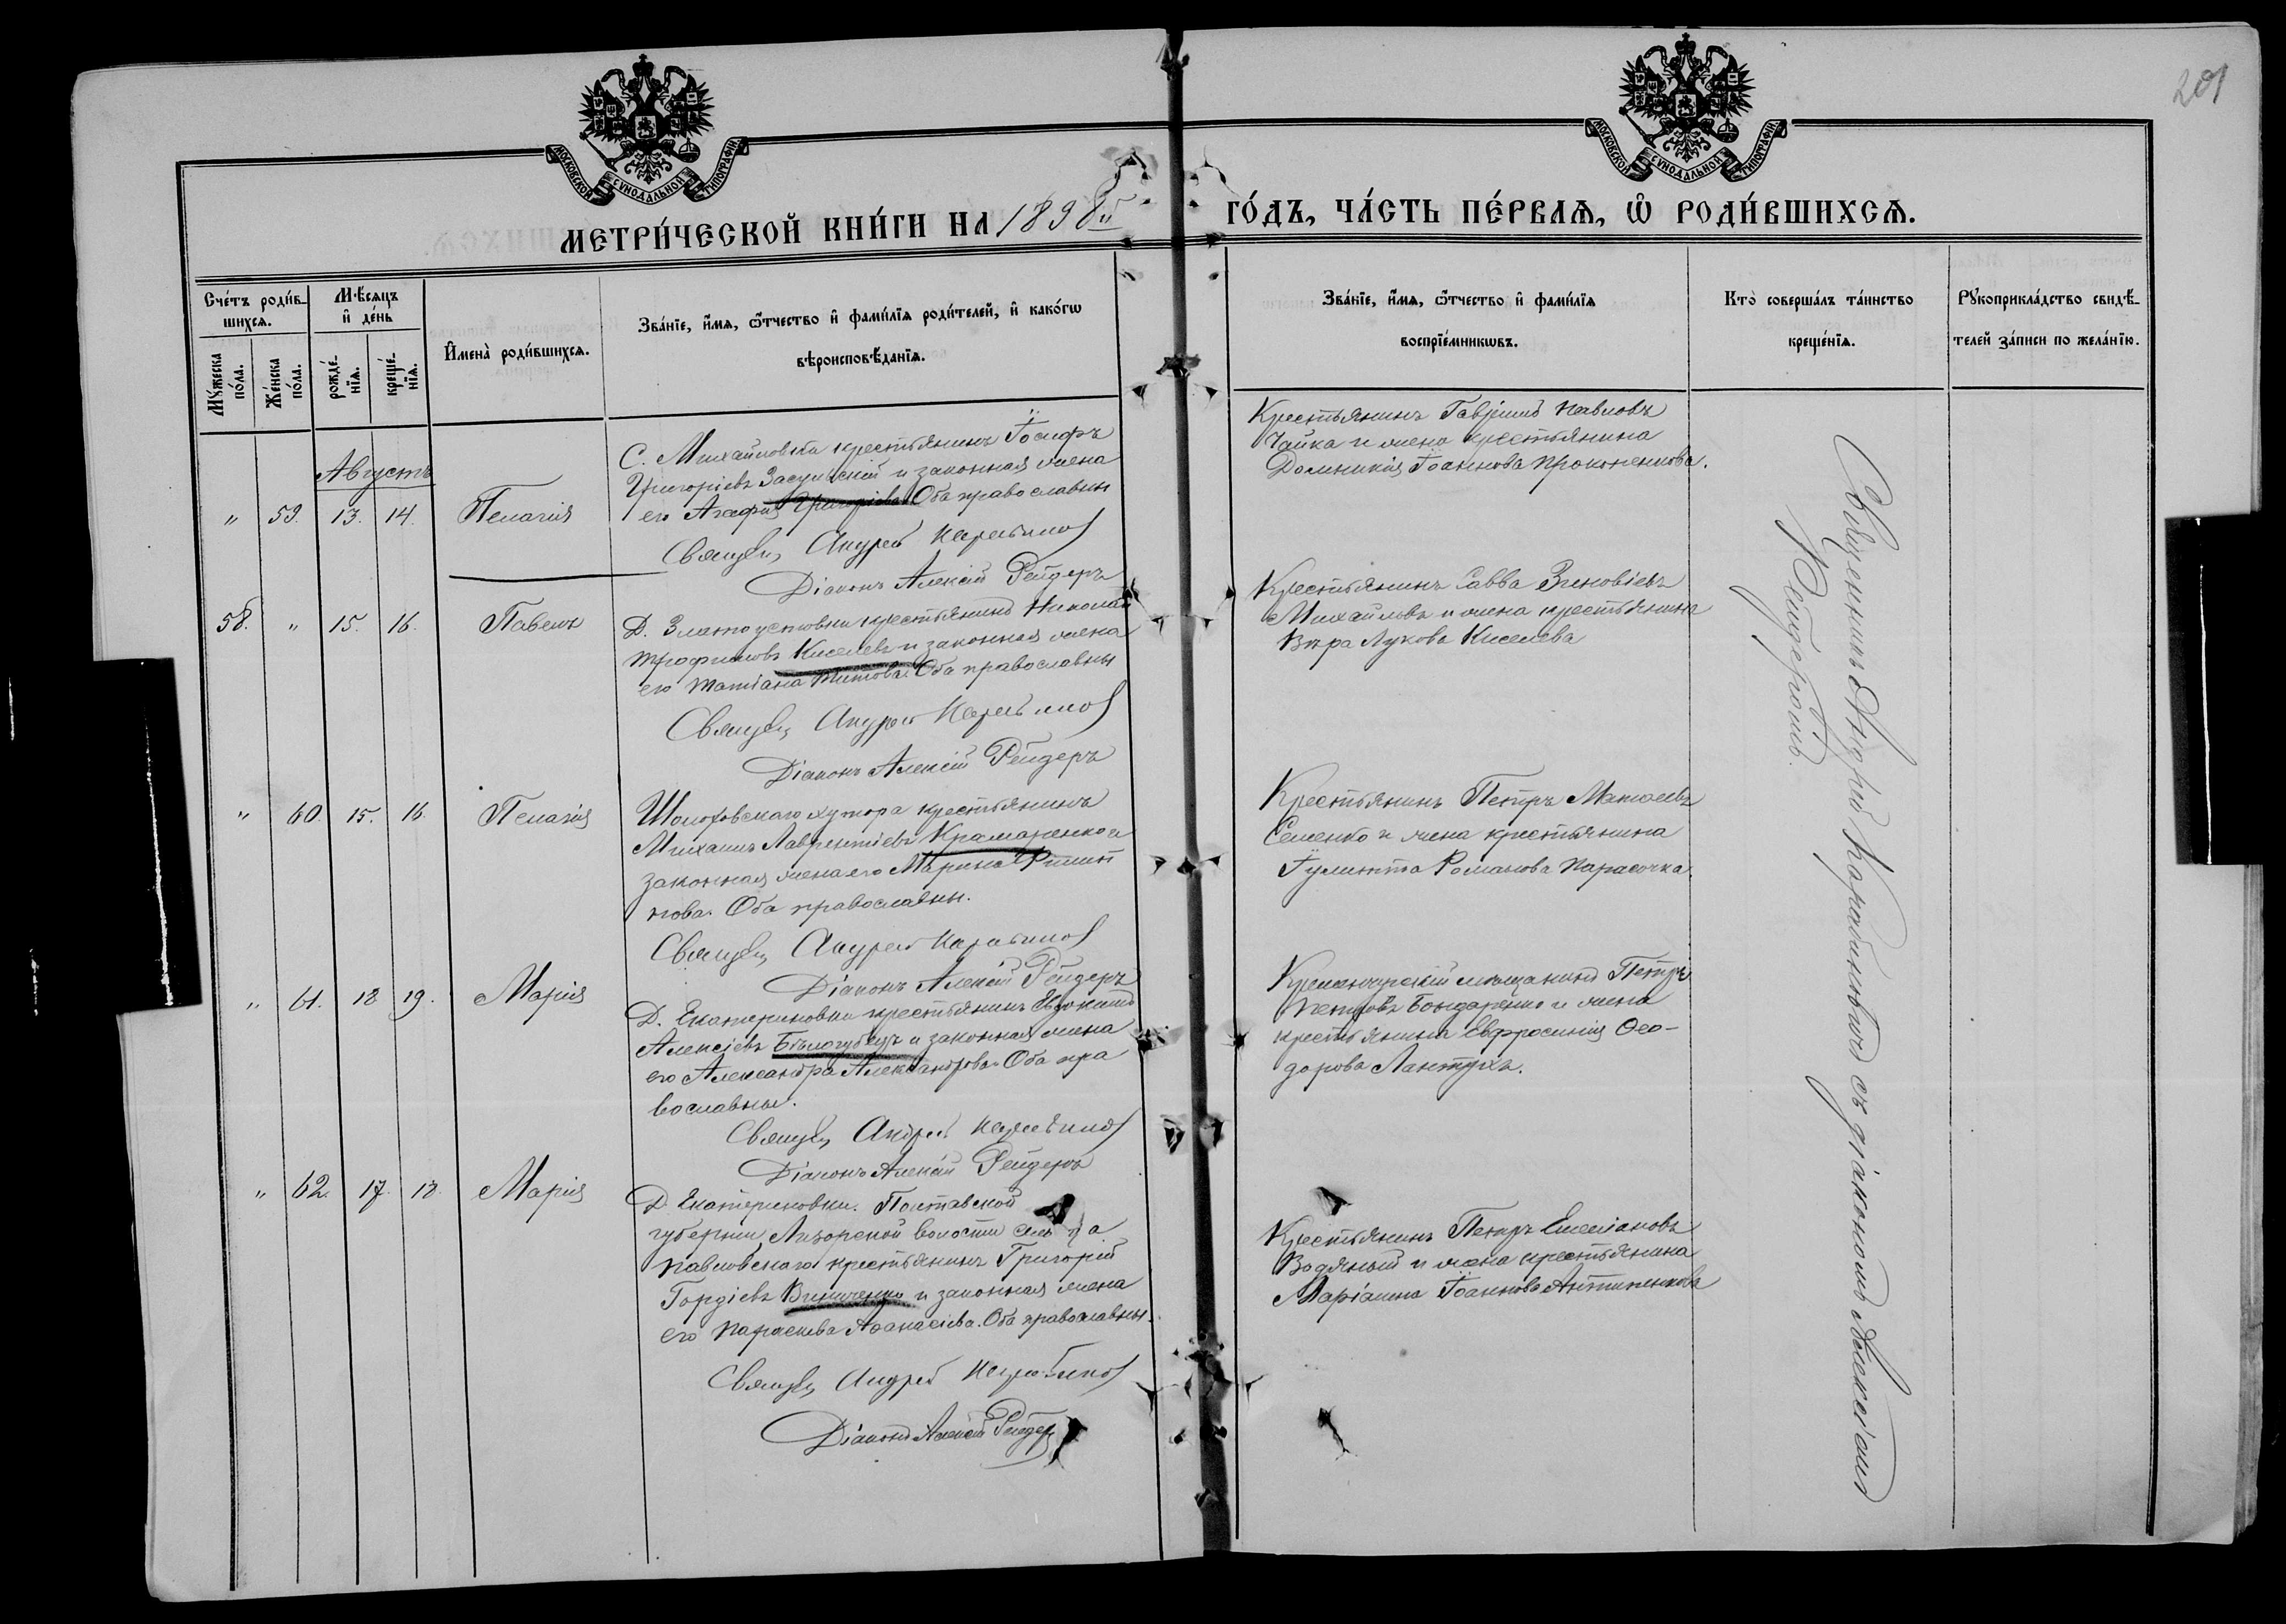 201
МОСКОВСКОЙ СУНОДАЛЬНОЙ ТИПОГРАФІИ
МОСКОВСКОЙ СУНОДАЛЬНОЙ ТИПОГРАФІИ
МЕТРИ́ЧЕСКОЙ КНИ́ГИ НА 1898й ГО́ДЪ, ЧА́СТЬ ПЕ́РВАѦ, Ѽ РОДИ́ВШИХСѦ.
Сче́тъ роди́в-
шихсѧ.
Му́жеска
по́ла.
Же́нска
по́ла.
Мѣ́сѧцъ
и҆ де́нь
рожде́-
нїѧ.
креще́-
нїѧ.
И҆мена̀ роди́вшихсѧ.
Зва́нїе, и҆́мѧ, ѻ҆́тчество и҆ фами́лїѧ роди́телей, и҆ како́гѡ
вѣроисповѣ́данїѧ.
Зва́нїе, и҆́мѧ, ѻ҆́тчество и҆ фами́лїѧ
воспрїе́мникѡвъ.
Кто̀ соверша́лъ та́инство
креще́нїѧ.
Рꙋкоприкла́дство свидѣ́-
телей за́писи по жела́нїю.
Августъ
" 59. 13. 14. Пелагія
С. Михайловки крестьянинъ Іосифъ
Григоріевъ Засульскій и законная жена
его Агафія Григоріева. Оба православны
Священ. Андрей Карабинов
Діаконъ Алексій Рейдеръ
Крестьянинъ Гавріилъ Павловъ
Чайка и жена крестьянина
Домникія Іоаннова Прокопенкова.
58. " 15. 16. Павелъ
Д. Златоустовки крестьянинъ Николай
Трофимовъ Киселевъ и законная жена
его Татіана Титова. Оба православны
Священ. Андрей Карабинов
Діаконъ Алексій Рейдеръ
Крестьянинъ Савва Зиновіевъ
Михайловъ и жена крестьянина
Вѣра Лукова Киселева
" 60. 15. 16. Пелагія
Шолоховскаго хутора крестьянинъ
Михаилъ Лаврентіевъ Крамаренко и
законная жена его Марина Филип
пова. Оба православны.
Священ. Андрей Карабинов
Діаконъ Алексій Рейдеръ
Крестьянинъ Петръ Матѳеевъ
Семенко и жена крестьянина
Іулитта Романова Парасочка.
" 61. 18 19. Марія
Д. Екатериновки крестьянинъ Евдокимъ
Алексіевъ Бѣлогубецъ и законная жена
его Александра Александрова. Оба пра
вославны.
Священ. Андрей Карабинов
Діаконъ Алексій Рейдеръ
Кременчугскій мѣщанинъ Петръ
Петровъ Бондаренко и жена
крестьянина Евфросинія Ѳео-
дорова Лантухъ.
" 62. 17. 18. Марія
Д. Екатериновки. Полтавской
губерніи, волости села
Павловскаго крестьянинъ Григорій
Гордіевъ Винниченко и законная жена
его Параскева Аѳанасіева. Оба православны.
Священ. Андрей Карабинов
Діаконъ Алексій Рейдеръ
Крестьянинъ Петръ Емеліановъ
Водяный и жена крестьянина
Маріанна Іоаннова Антипенкова
Священникъ Андрей Карабиновъ съ діакономъ Алексіемъ
Рейдеромъ.